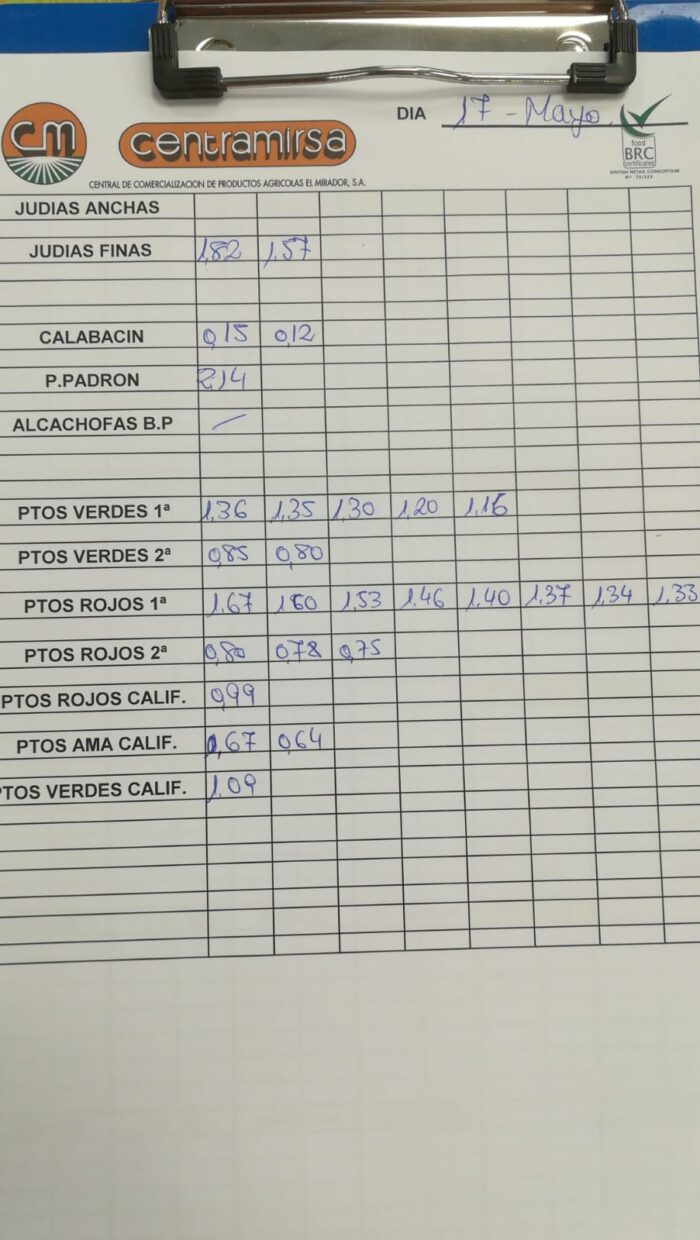 CM centramirsa
DIA 17 - Mayo
food
BRC
certificated
BRITISH RETAIL CONSORTIUM
CENTRAL DE COMERCIALIZACION DE PRODUCTOS AGRICOLAS EL MIRADOR, S.A.
JUDIAS ANCHAS
JUDIAS FINAS 1,82 1,57
CALABACIN 0,15 0,12
P.PADRON 2,14
ALCACHOFAS B.P —
PTOS VERDES 1ª 1,36 1,35 1,30 1,20 1,16
PTOS VERDES 2ª 0,85 0,80
PTOS ROJOS 1ª 1,67 1,60 1,53 1,46 1,40 1,37 1,34 1,33
PTOS ROJOS 2ª 0,80 0,78 0,75
PTOS ROJOS CALIF. 0,99
PTOS AMA CALIF. 0,67 0,64
PTOS VERDES CALIF. 1,09